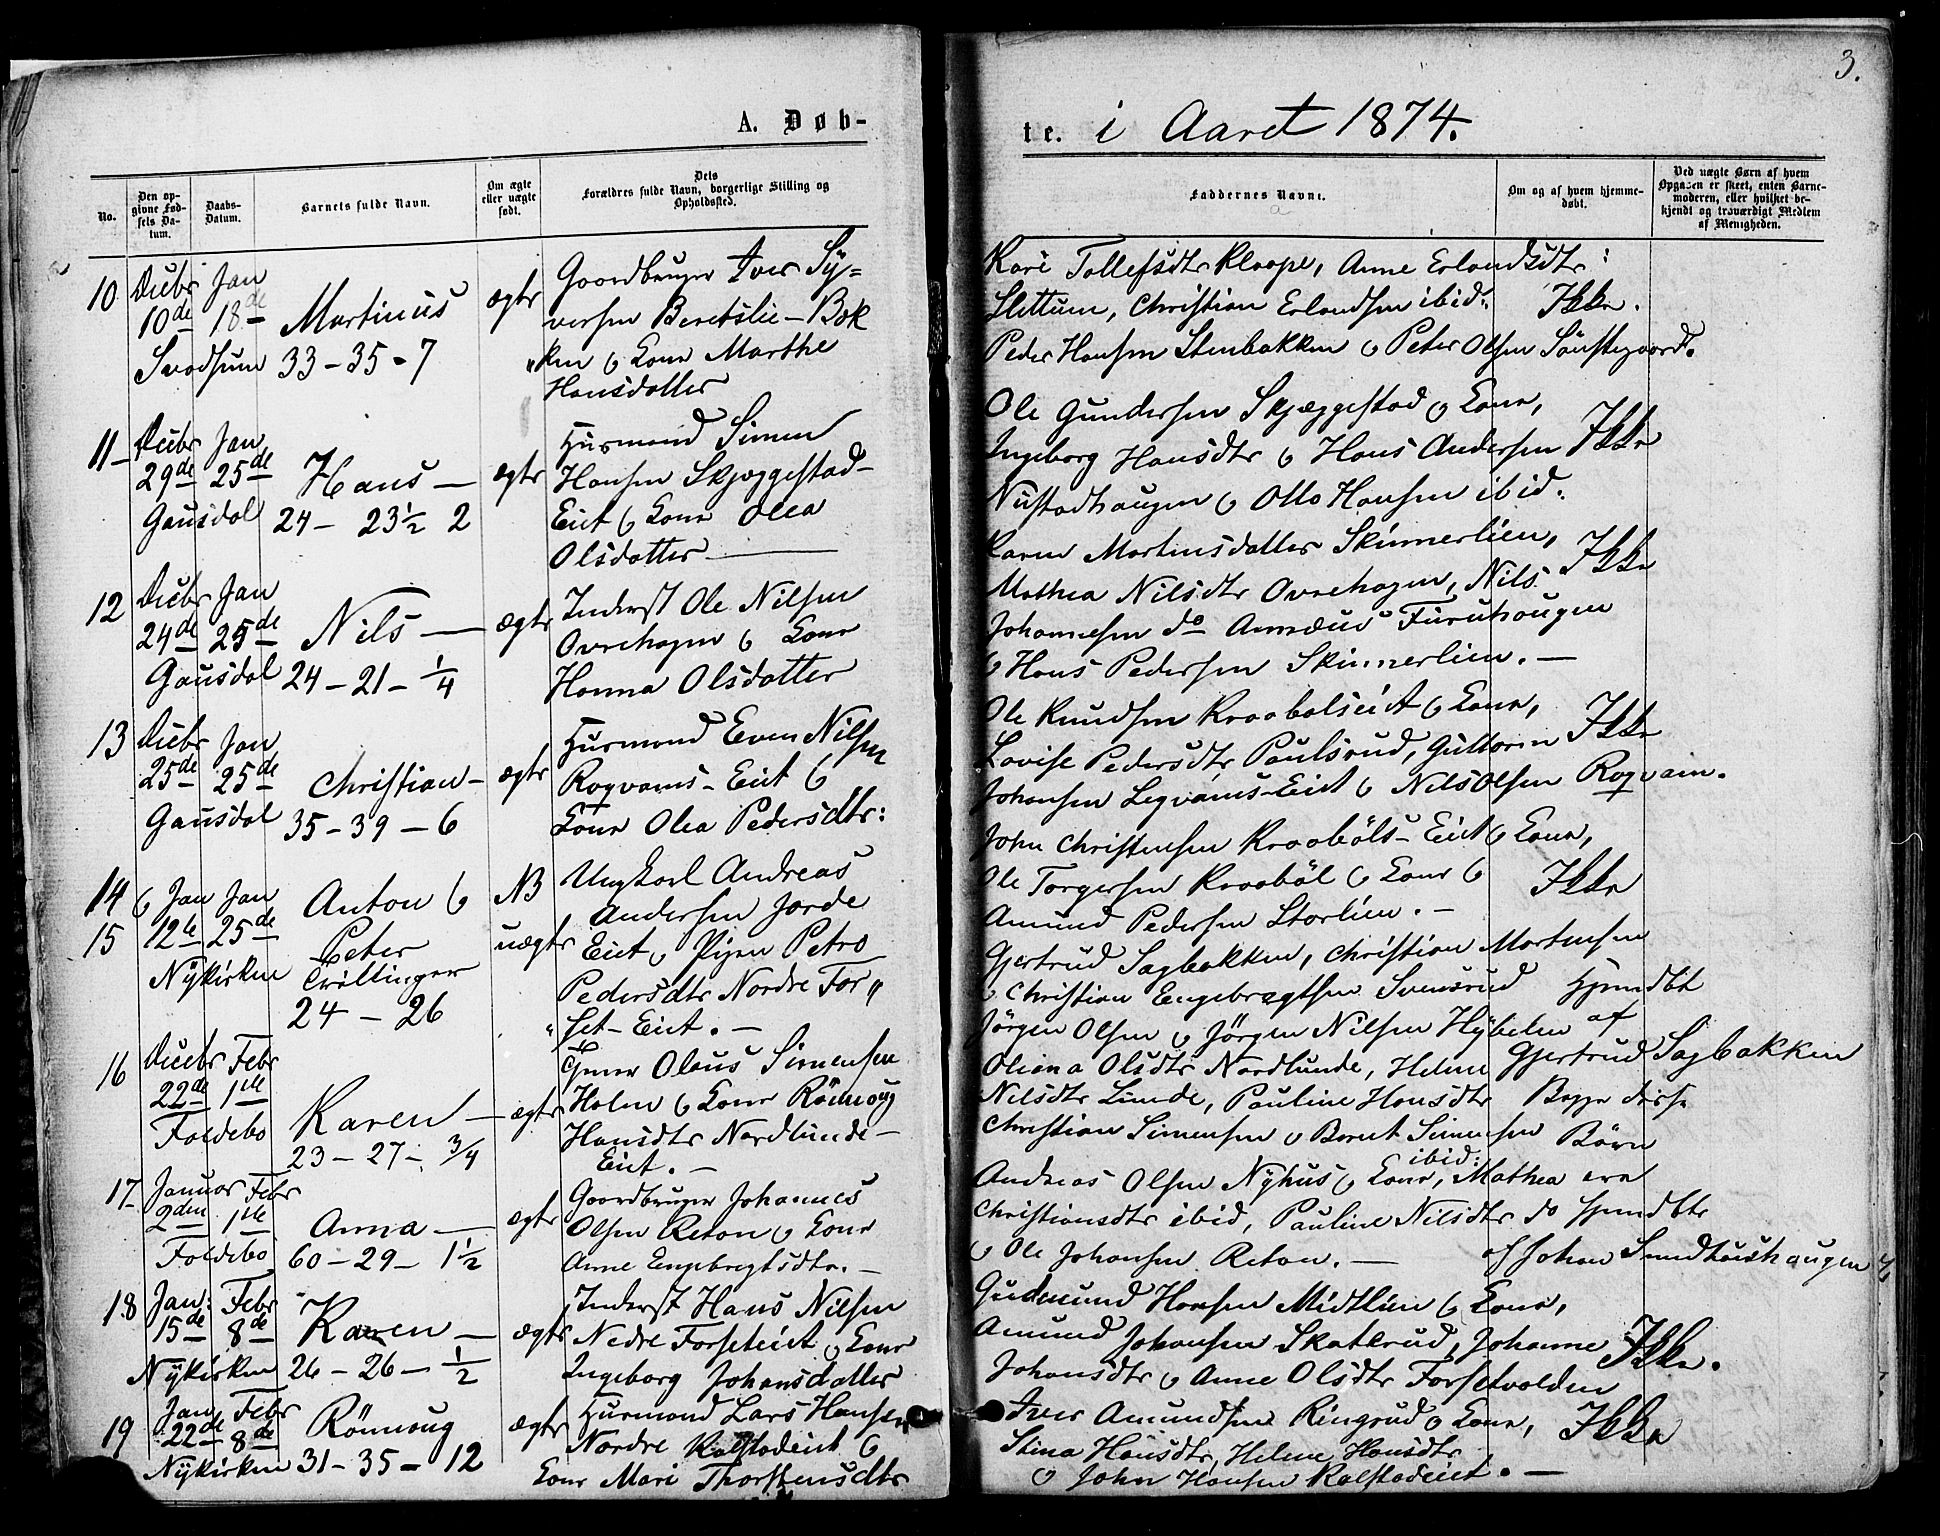 3.
A. Døb-
te. i Aaret 1874.
No.
Den op-
givne Fød-
sels Da-
tum.
Daabs-
Datum.
Barnets fulde Navn.
Om ægte
eller uægte
født.
Dets
Forældres fulde Navn, borgerlige Stilling og
Opholdssted.
Faddernes Navne.
Om og af hvem hjemme-
døbt.
Ved uægte Børn af hvem
Opgaven er skeet, enten Barne-
moderen, eller hvilket be-
kjendt og troværdigt Medlem
af Menigheden.
10
Decbr
10de
Jan
18de
Svadsum
Martinus
33 - 35 - 7
ægte
Gaardbruger Iver Sy-
versen Beretslie - Bak
"ken & Kone Marthe
Hansdatter
Kari Tollefsdtr Klaape, Anne Erlandsdtr:
Slettum, Christian Erlandsen ibid:
Peder Hansen Stenbakken & Peter Olsen Sönstegaard.
Ikke.
11 -
Decbr
29de
Jan
25de
Gausdal
Hans -
24 - 23½ 2
ægte
Husmand Simen
Hansen Skjæggestad-
Eiet & Kone Olea
Olsdatter
Ole Gundersen Skjæggestad & Kone,
Ingeborg Hansdtr & Hans Andersen
Nustadhaugen & Otto Hansen ibid.
Ikke
12
Decbr
24de
Jan
25de
Gausdal
Nils -
24 - 21 - ¼
ægte
Inderst Ole Nilsen
Ovrehagen & Kone
Hanna Olsdatter
Karen Martinsdatter Skinnerlien,
Mathea Nilsdtr Ovrehagen, Nils
Johannesen do Amæus Furuhaugen
& Hans Pedersen Skinnerlien. -
Ikke
13
Decbr
25de
Jan
25de
Gausdal
Christian -
35 - 39 - 6
ægte
Husmand Even Nilsen
Rogvams - Eiet &
Kone Olea Pedersdtr:
Ole Knudsen Kraabölseiet & Kone,
Lovise Pedersdtr Paulsrud, Guttorm
Johansen Legvams-Eiet & Nils Olsen Rogvam.
Ikke
14 &
15
Jan
12te
Jan
25de
Nykirken
Anton &
Peter
Tvillinger
24 - 26
NB
uægte
Ungkarl Andreas
Andersen Jorde
Eiet & Pigen Petro
Pedersdtr Nordre For "
"set - Eiet. -
John Christensen Kraaböls - Eiet & Kone,
Ole Torgersen Kraaböl & Kone &
Amund Pedersen Storlien. -
Gjertrud Sagbakken, Christian Mortensen
& Christian Engebregtsen Svensrud
Jörgen Olsen & Jörgen Nilsen Hybelen
Ikke
Hjemdbt
af
Gjertrud Sagbakken
Begge disse
Børn
16
Decbr
22de
Febr
1ste
Foldebo
Karen -
23 - 27 - ¾
ægte
Olaus Simensen
Holen & Kone Rönnoug
Hansdtr Nordlunde -
Eiet. -
Oliana Olsdtr Nordlunde, Helene
Nilsdtr Lunde, Pauline Hansdtr
Christian Simensen & Bernt Simensen
ibid:
17
Januar
2den
Febr
1ste
Foldebo
Anna -
60 - 29 - 1½
ægte
Gaardbruger Johannes
Olsen Reton & Kone
Anne Engebregtsdtr. -
Andreas Olsen Nyhus & Kone, Mathea
Christiansdtr ibid, Pauline Nilsdtr do
& Ole Johansen Reton. -
Hjemdbt
af Johan Smedhaushaugen
18
Jan:
15de
Febr
8de
Nykirken
Karen -
26 - 26 - ½
ægte
Inderst Hans Nilsen
Nedre Forseteiet & Kone
Ingeborg Johansdatter
Gudmund Hansen Midtlien & Kone,
Amund Johansen Skatterud, Johanne
Johansdtr & Anne Olsdtr Forsetvolden
Ikke.
19
Jan
22de
Febr
8de
Nykirken
Rönnoug
31 - 35 - 12
ægte
Husmand Lars Hansen
Nordre Kalstadeiet &
Kone Mari Thorstensdtr
Iver Amundsen Ringrud & Kone,
Stina Hansdtr, Helene Hansdtr
& John Hansen Kalstadeiet. -
Ikke